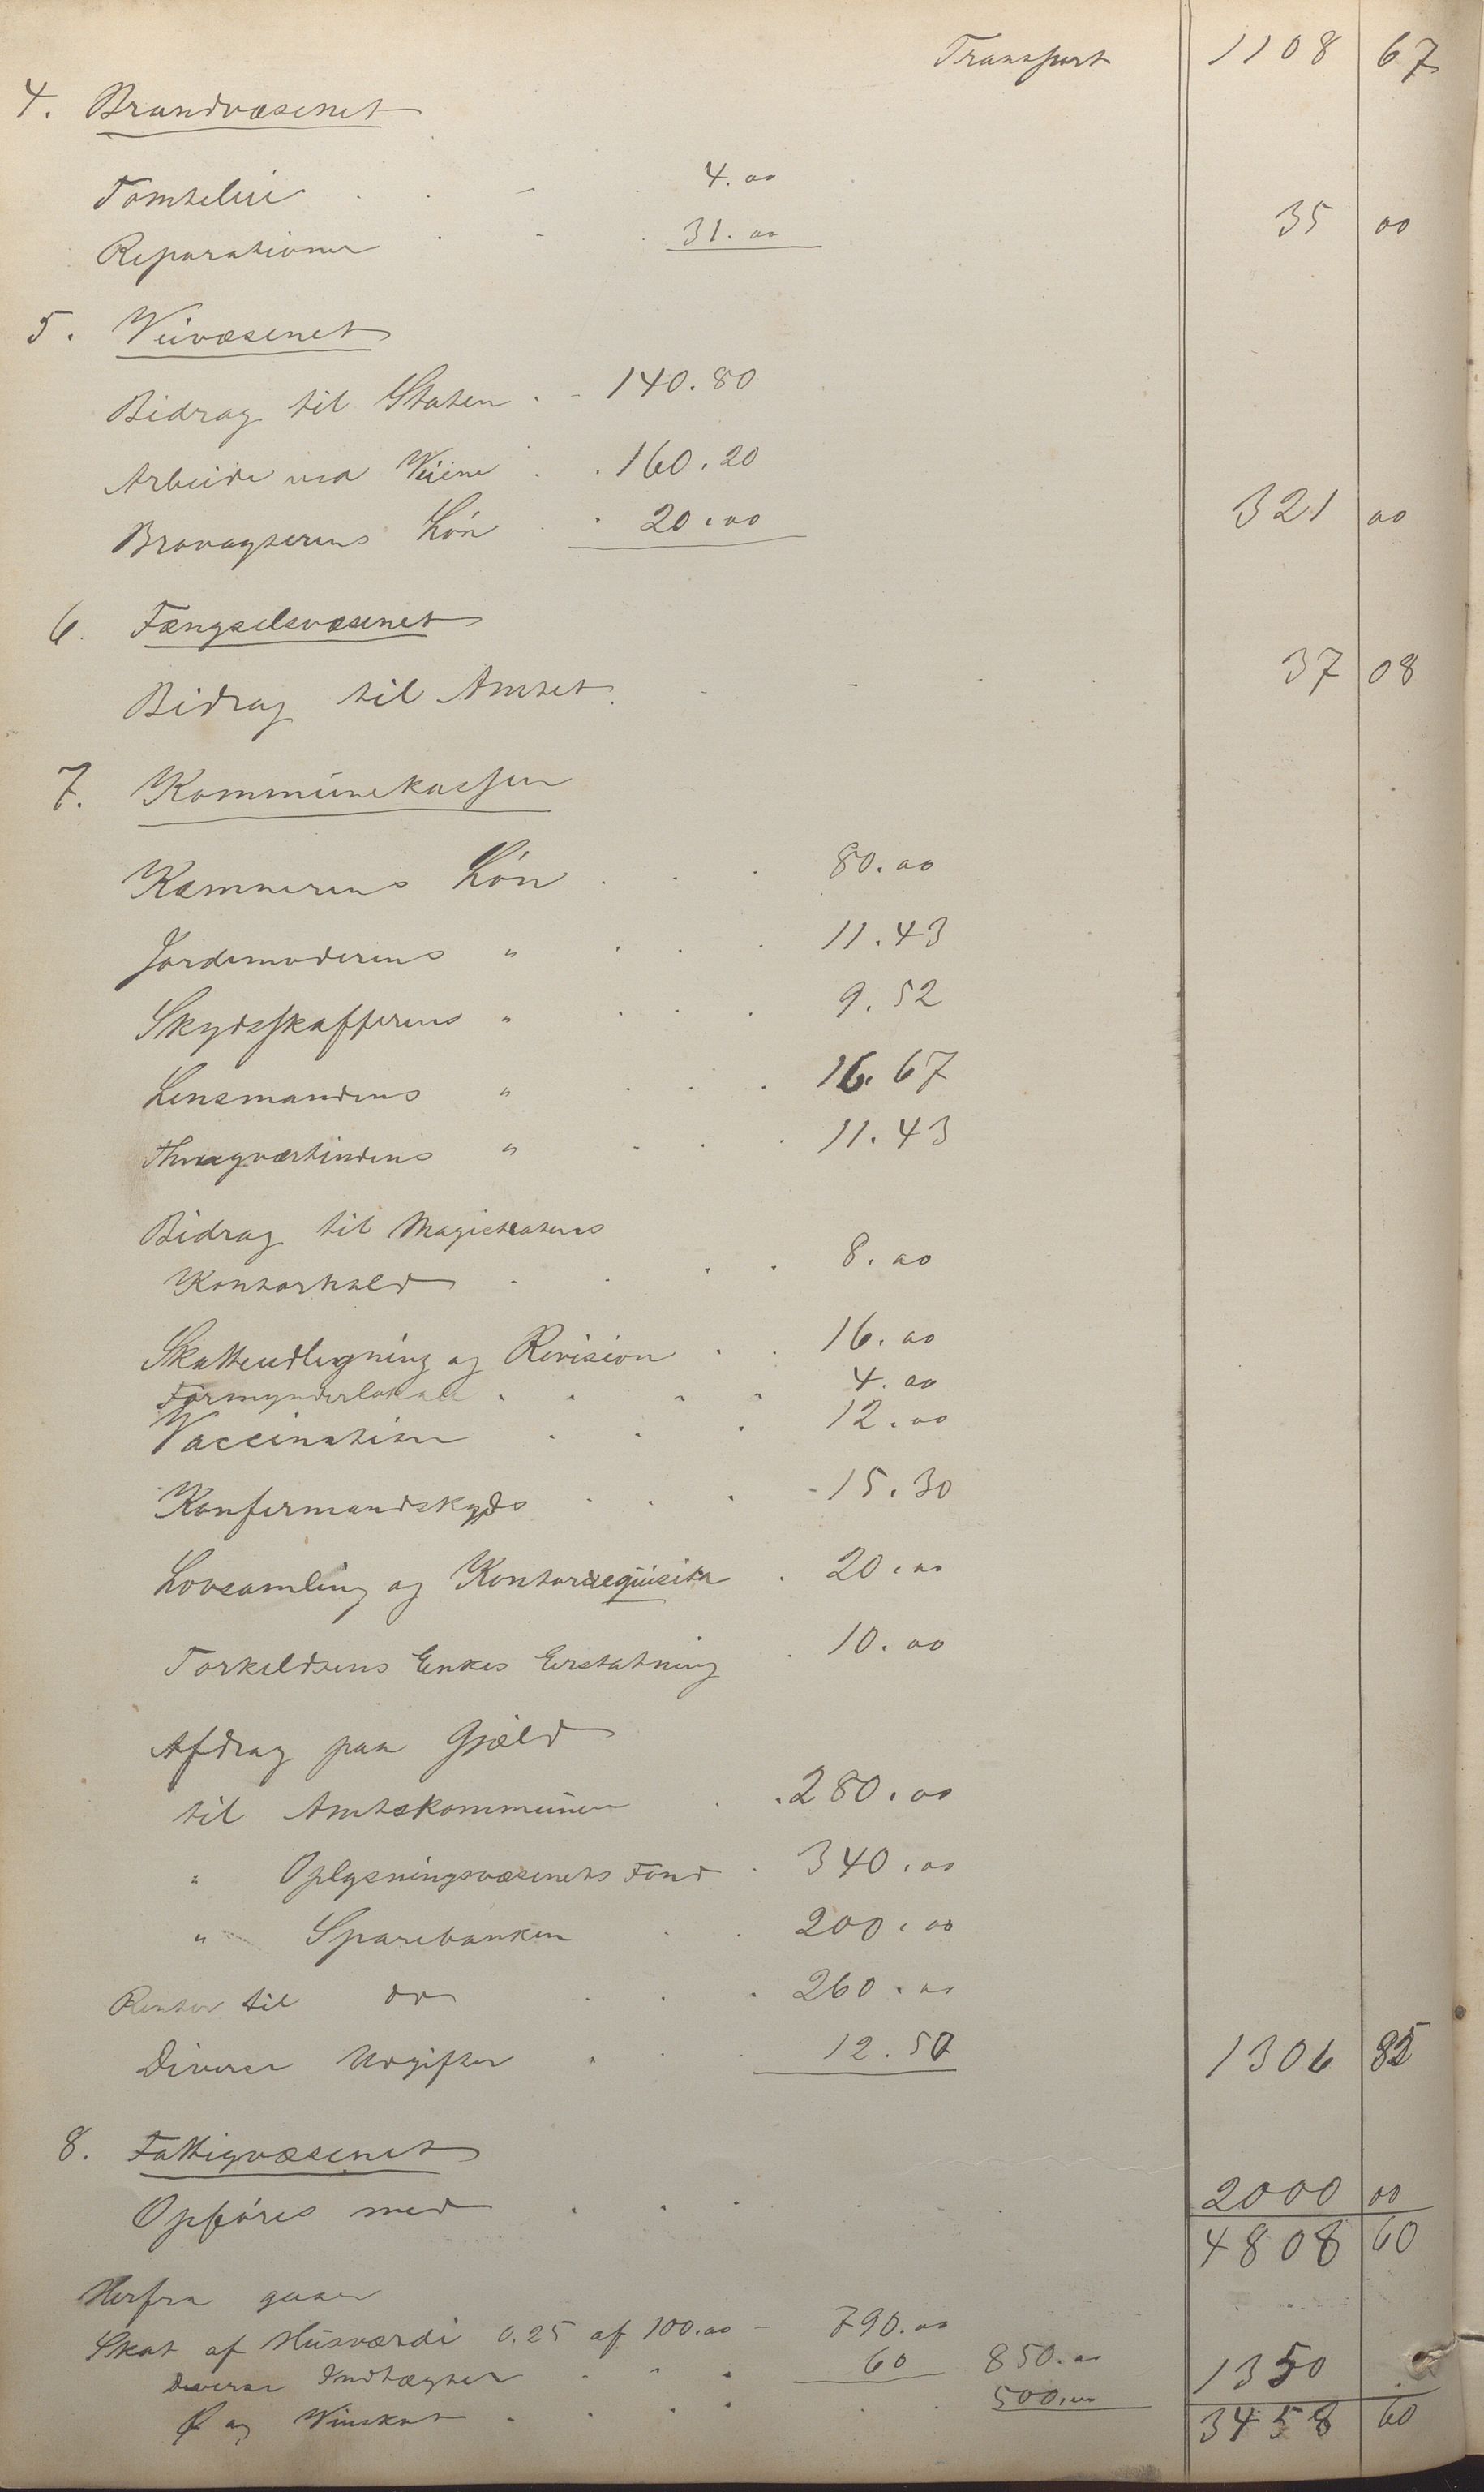 Transport 1108 67
4. Brandvæsenet
Tomteleie . . - . 4.00
Reparationer . - . 31.00 35 00
5. Veivæsenet
Bidrag til Staten . - 140.80
Arbeide ved Veiene . . 160.20
Brovagterens Løn . . 20.00 321 00
6. Fængselsvæsenet
Bidrag til Amtet . - - . 37 08
7. Kommunekassen
Kæmnerens Løn . . . 80.00
Jordemoderens " . . . 11.43
Skydsskafferens " . . . 9.52
Lensmandens " . . . 16.67
Thingværtindens " . . . 11.43
Bidrag til Magistratens
Kontorhold . . . . 8.00
Skatteudligning og Revision . . 16.00
Formynderlokale . . . . 4.00
Vaccination . . . 12.00
Konfirmandskyds . . . - 15.30
Lovsamling og Kontorrequisita . 20.00
Torkeldsens Enkes Erstatning . 10.00
Afdrag paa Gjæld
til Amtskommunen . . 280.00
" Oplysningsvæsenets Fond . 340.00
" Sparebanken . . 200.00
Renter til do . . . 260.00
Diverse Udgifter . . . 12.50 1306 85
8. Fattigvæsenet
Opføres med . . . . . 2000 00
4808 60
Herfra gaaer
Skat af Husværdi 0.25 af 100.00 - 790.00
Diverse Indtægter . . . 60 850.00 1350 .
Øl og Vinskat . . . . . . 500.00 3458 60